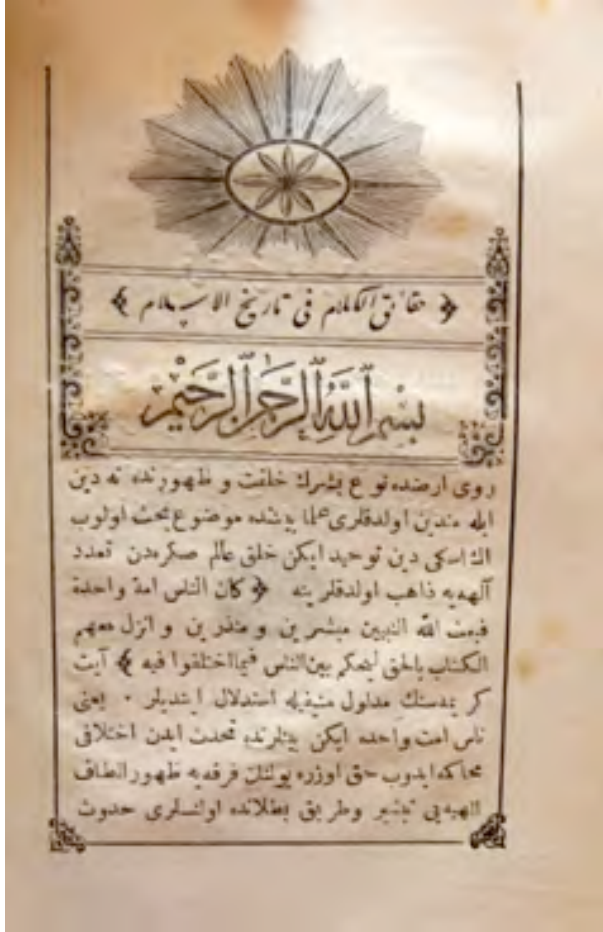 ﴿ حقائق الكلام فی تاریخ الاسلام ﴾
بسم الله الرحمن الرحیم
روی ارضده نوع بشرك خلقت و ظهورنده نه دین
ایله متدین اولدقلری علما بیننده موضوع بحث اولوب
اك اسكی دین توحید ایكن خلق عالم صكره دن تعدد
آلهه یه ذاهب اولدقلرینه ﴿ كان الناس امة واحدة
فبعث الله النبیین مبشرین و منذرین و انزل معهم
الكتاب بالحق لیحكم بین الناس فیما اختلفوا فیه ﴾ آیت
كریمه سنك مدلول منیفیله استدلال ایتدیلر ٠ یعنی
ناس امت واحده ایكن بینلرنده تحدث ایدن اختلافی
محاكمه ایدوب حق اوزره بولنان فرقه یه ظهور الطاف
الهیه یی تبشیر وطریق بطلانده اولنلری حدوث